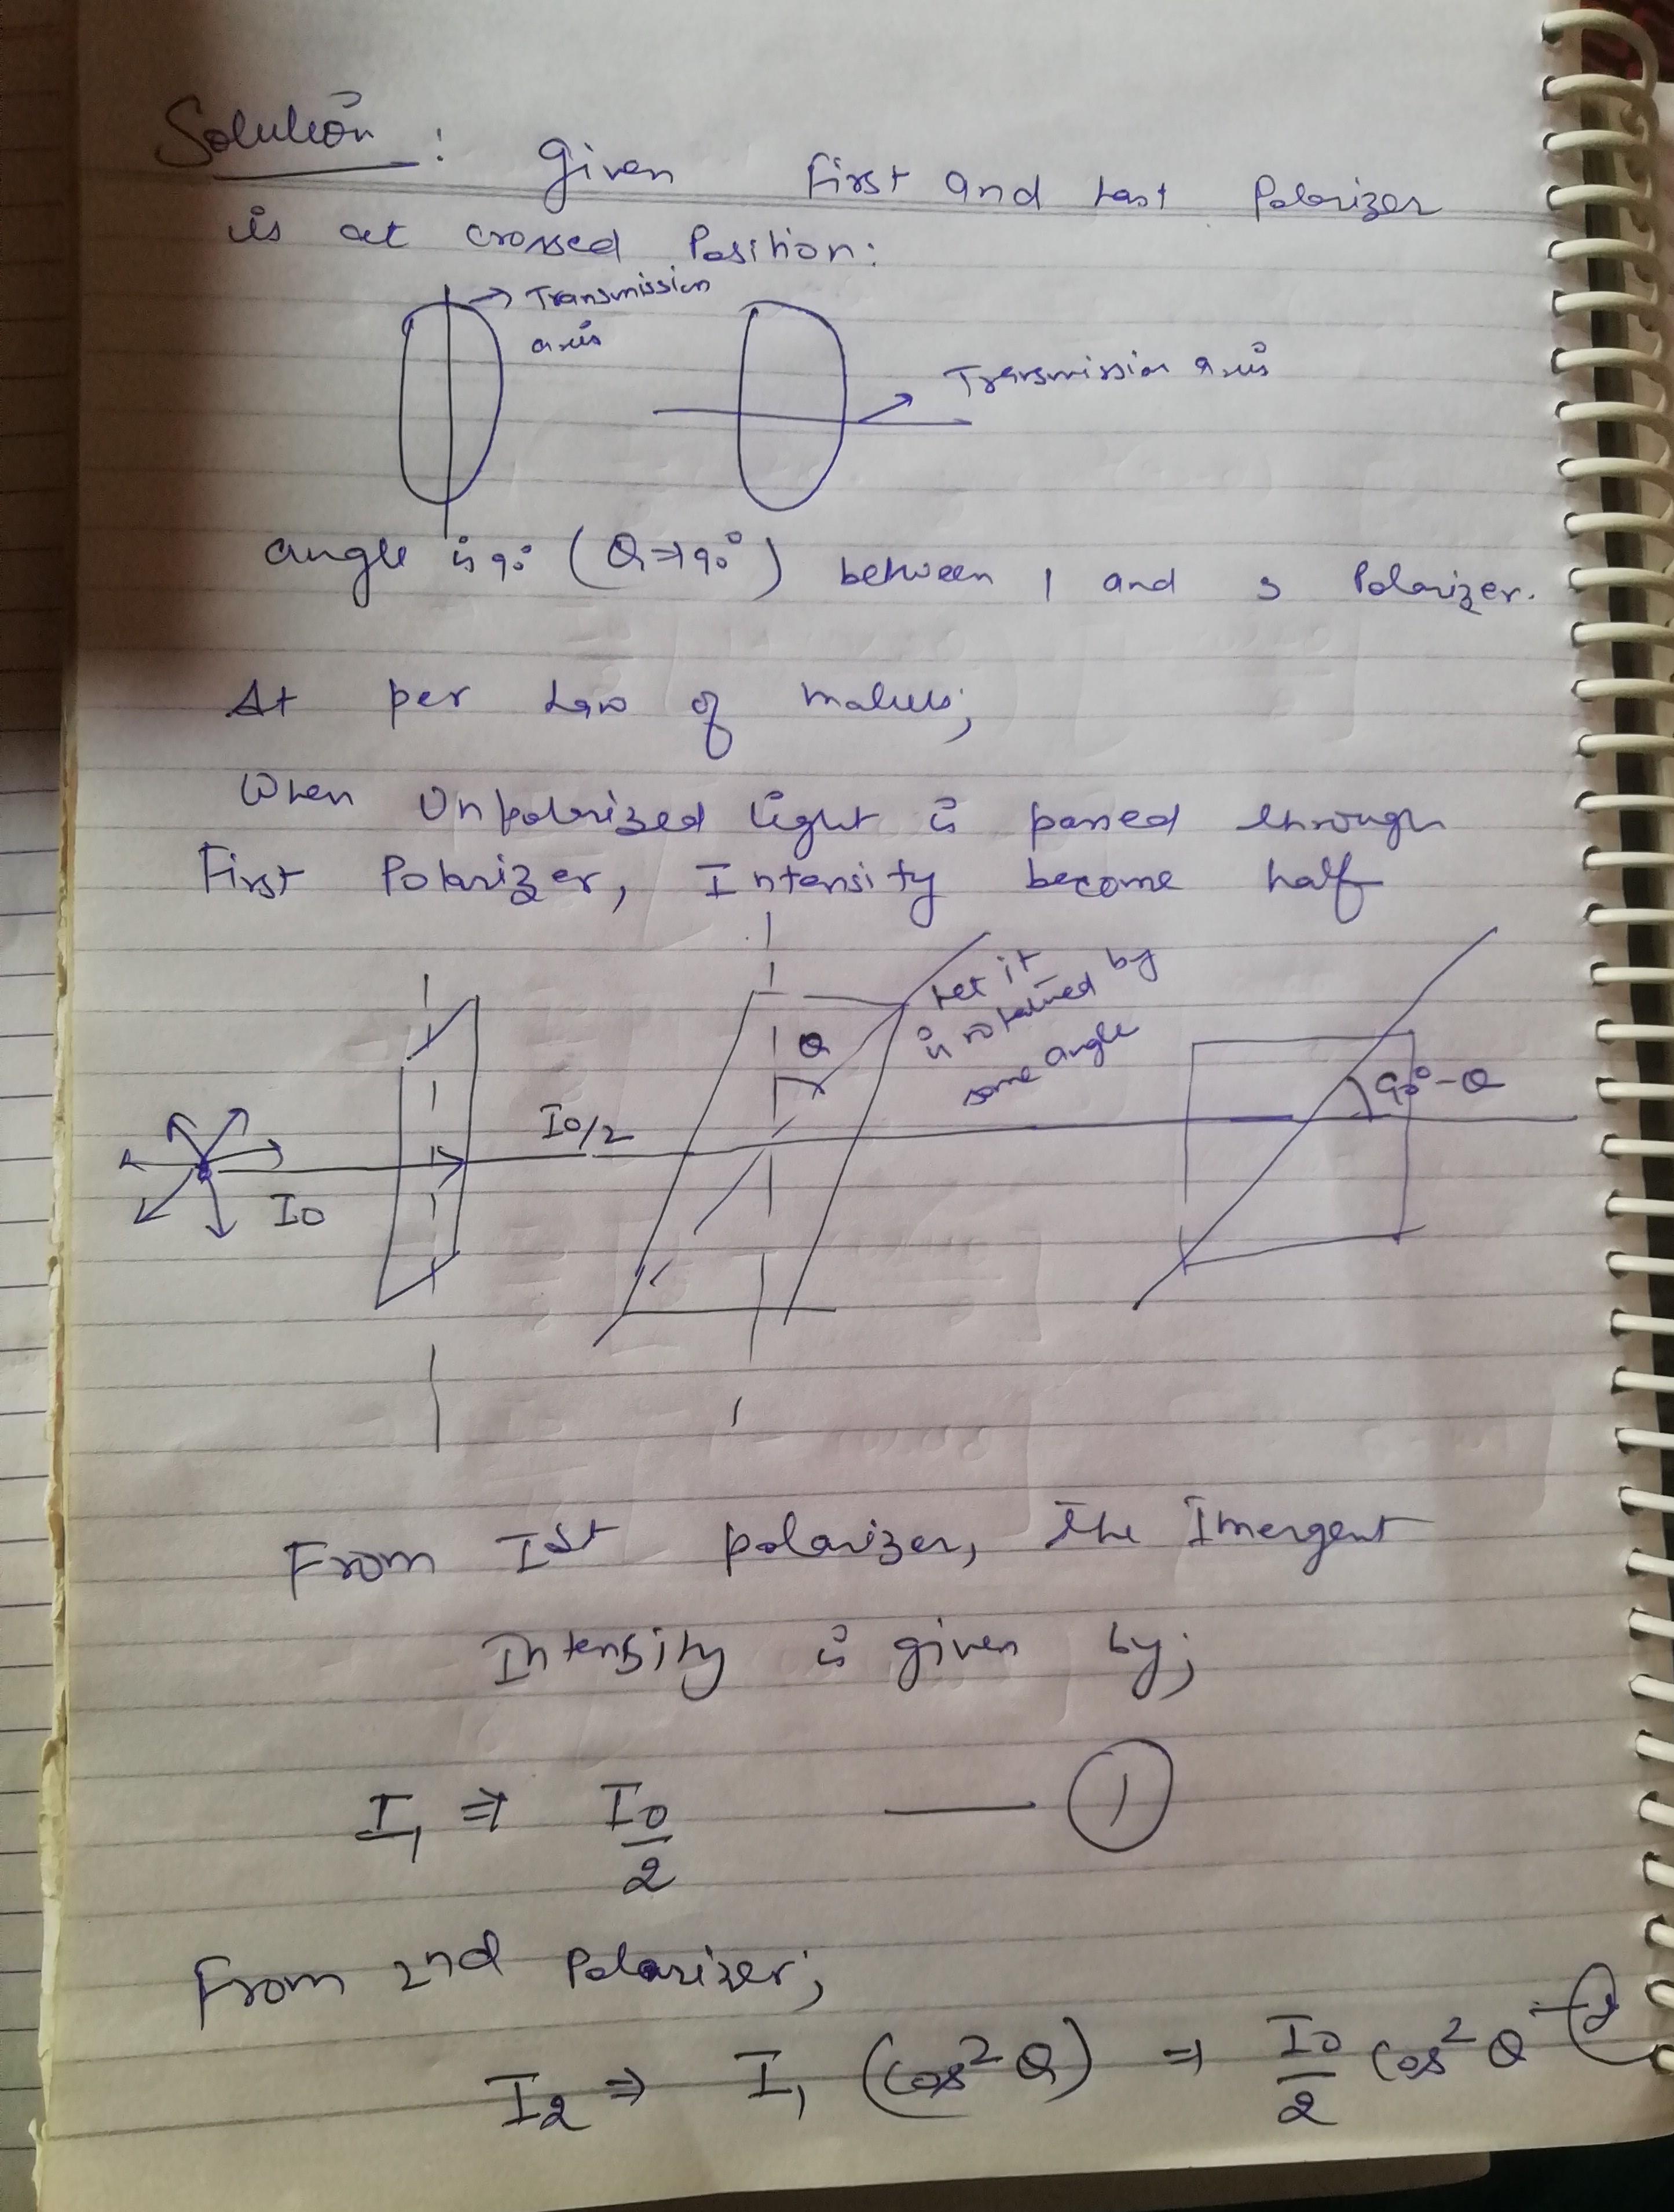 Solution : Given First and Last Polarizer
is at crossed Position:
→ Transmission
axis
Transmission axis
angle is 90° (θ⇒90°) between 1 and 3 Polarizer.
At per Law of malus;
When Unpolarized light is passed through
First Polarizer, Intensity become half
Let it
is rotained by
some angle
θ
90°-θ
I0/2
I0
From Ist polarizer, the Imergent
Intensity is given by;
I1 ⇒ I0/2 — 1
From 2nd Polarizer;
I2 ⇒ I1 (cos²θ) ⇒ I0/2 cos²θ — 2